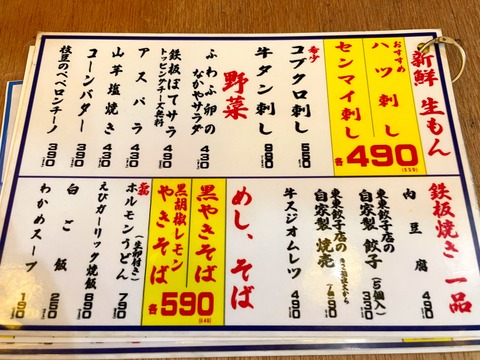 新鮮 生もん
おすすめ
ハツ刺し
センマイ刺し
各490
(539)
希少
コブクロ刺し
550
牛タン刺し
980
野菜
ふわふわ卵の
なかやサラダ
430
鉄板ポテサラ
トッピングチーズ無料
490
アスパラ
430
山芋塩焼き
430
コーンバター
390
枝豆のペペロンチーノ
390
鉄板焼き 一品
肉豆腐
490
東東餃子店の
自家製 餃子
(5個入)
330
東東餃子店の
自家製 焼売
牛スジオムレツ
490
めし、そば
黒やきそば
黒胡椒レモン
やきそば
各590
(649)
ホルモンうどん
(生卵付き)
790
えびガーリック焼飯
690
白ご飯
250
わかめスープ
190